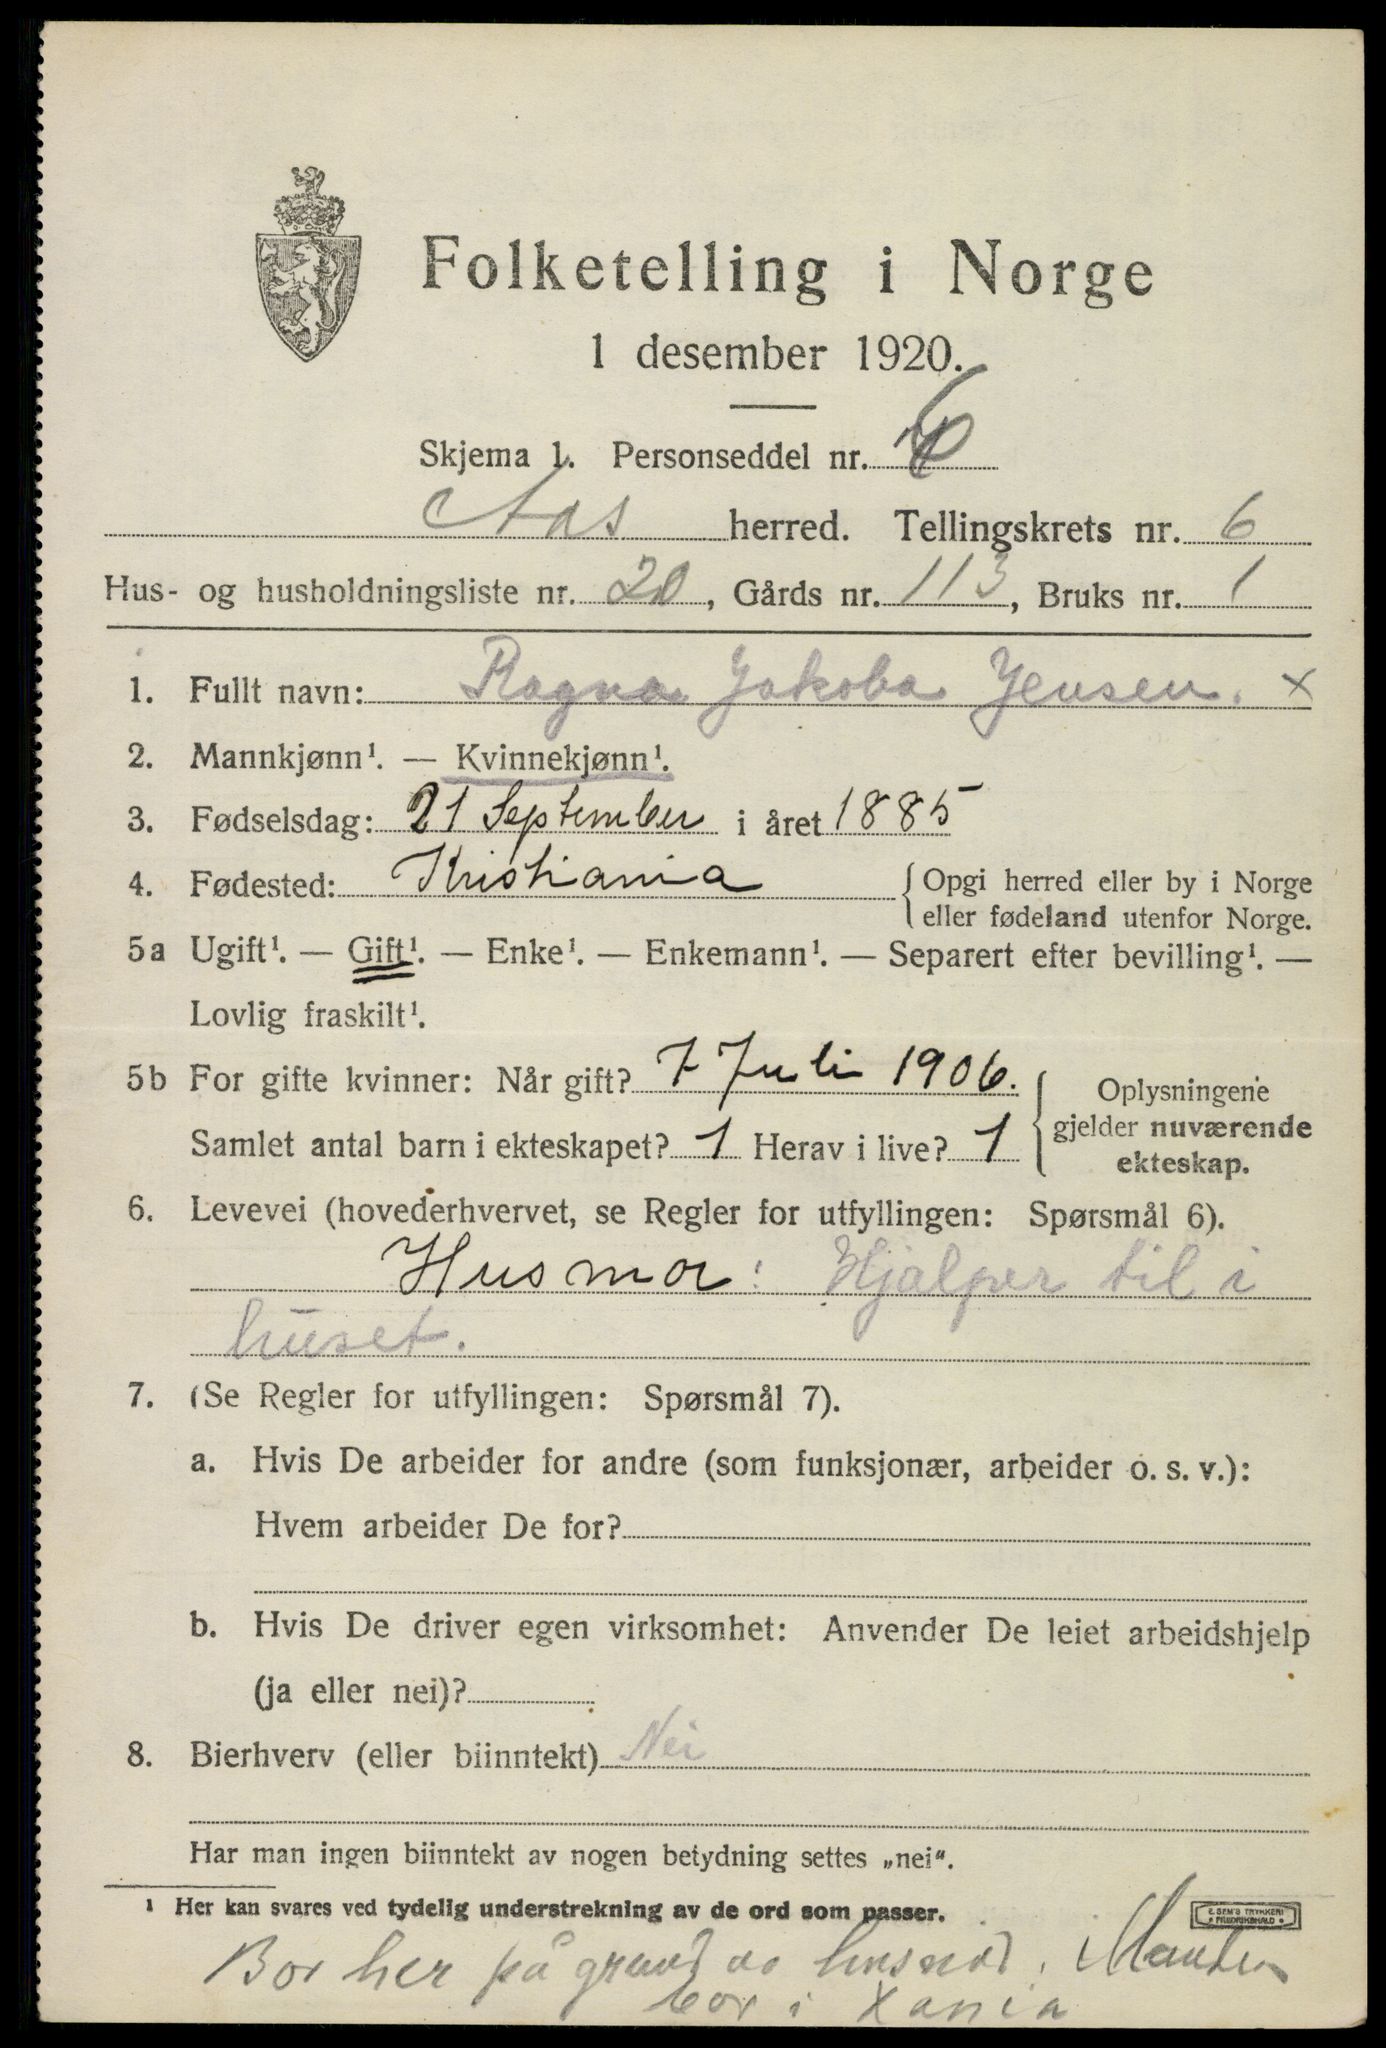 Folketelling i Norge
1 desember 1920.
Skjema 1. Personseddel nr. 6
Aas herred. Tellingskrets nr. 6
Hus- og husholdningsliste nr. 20, Gårds nr. 113, Bruks nr. 1
1. Fullt navn: Ragna Jakoba Jensen. x
2. Mannkjønn¹. — Kvinnekjønn¹.
3. Fødselsdag: 21 September i året 1885
4. Fødested: Kristiania { Opgi herred eller by i Norge
eller fødeland utenfor Norge.
5a Ugift¹. — Gift¹. — Enke¹. — Enkemann¹. — Separert efter bevilling¹. —
Lovlig fraskilt¹.
5b For gifte kvinner: Når gift? 7 Juli 1906. { Oplysningene
Samlet antal barn i ekteskapet? 1 Herav i live? 1 gjelder nuværende
ekteskap.
6. Levevei (hovederhvervet, se Regler for utfyllingen: Spørsmål 6).
Husmor: Hjælper til i
huset.
7. (Se Regler for utfyllingen: Spørsmål 7).
a. Hvis De arbeider for andre (som funksjonær, arbeider o. s. v.):
Hvem arbeider De for?
b. Hvis De driver egen virksomhet: Anvender De leiet arbeidshjelp
(ja eller nei)?
8. Bierhverv (eller biinntekt) Nei
Har man ingen biinntekt av nogen betydning settes „nei".
¹ Her kan svares ved tydelig understrekning av de ord som passer.
E. SEM'S TRYKKERI
• FREDRIKSHALD •
Bor her på grund av husnød. Manden
bor i Xania